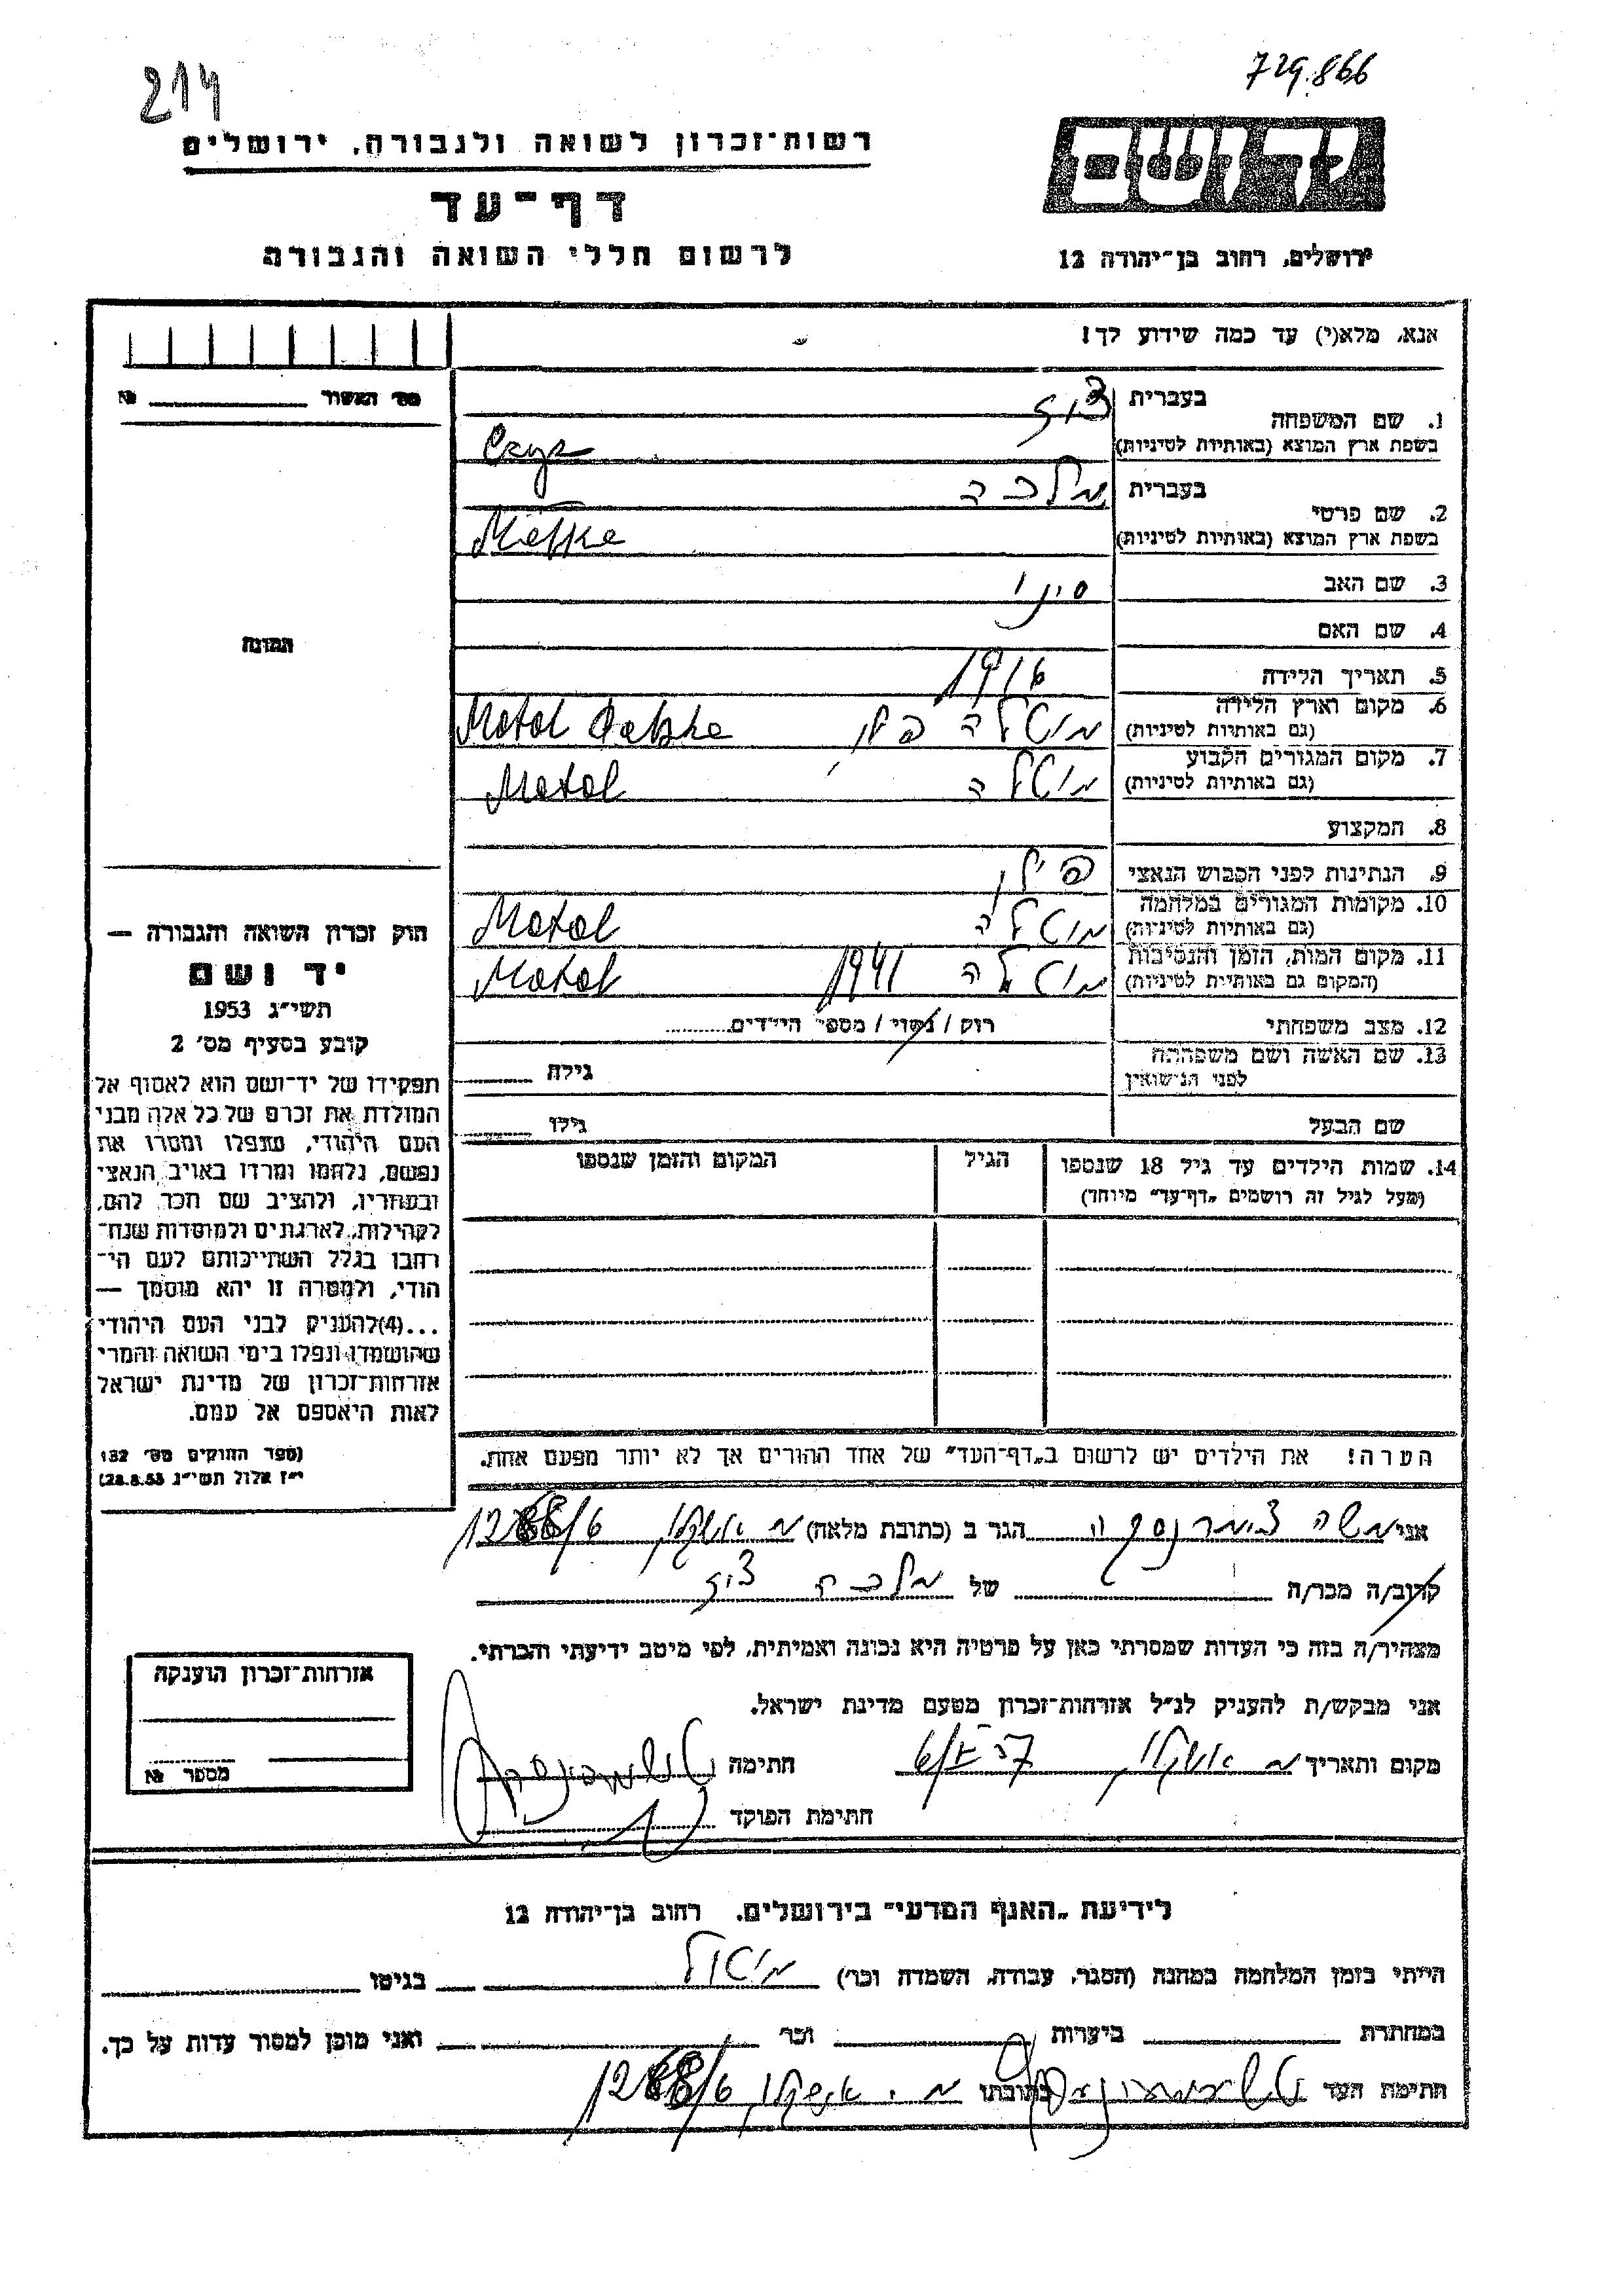 729.866
214
רשות־זכרון לשואה ולגבורה, ירושלים
דף־עד
לרשום חללי השואה והגבורה
יד ושם
ירושלים, רחוב בן־יהודה 12
אנא, מלא(י) עד כמה שידוע לך!
מס׳ האשור №
1. שם המשפחה בעברית
בשפת ארץ המוצא (באותיות לטיניות)
2. שם פרטי בעברית מלכה
בשפת ארץ המוצא (באותיות לטיניות)
3. שם האב
4. שם האם
5. תאריך הלידה 1916
6. מקום וארץ הלידה מוטלה פולין Motol
(גם באותיות לטיניות)
7. מקום המגורים הקבוע מוטלה Motol
(גם באותיות לטיניות)
8. המקצוע
9. הנתינות לפני הכבוש הנאצי
10. מקומות המגורים במלחמה מוטלה Motol
(גם באותיות לטיניות)
11. מקום המות, הזמן והנסיבות מוטלה 1941 Motol
(המקום גם באותיות לטיניות)
12. מצב משפחתי רוק / נשוי / מספר הילדים
13. שם האשה ושם משפחתה
לפני הנישואין גילה
שם הבעל גילו
14. שמות הילדים עד גיל 18 שנספו הגיל המקום והזמן שנספו
(מעל לגיל זה רושמים „דף־עד״ מיוחד)
הערה! את הילדים יש לרשום ב„דף־העד״ של אחד ההורים אך לא יותר מפעם אחת.
התמונה
חוק זכרון השואה והגבורה —
יד ושם
תשי״ג 1953
קובע בסעיף מס׳ 2
תפקידו של יד־ושם הוא לאסוף אל
המולדת את זכרם של כל אלה מבני
העם היהודי, שנפלו ומסרו את
נפשם, נלחמו ומרדו באויב הנאצי
ובעוזריו, ולהציב שם וזכר להם,
לקהילות, לארגונים ולמוסדות שנח־
רחבו בגלל השתייכותם לעם הי־
הודי, ולמטרה זו יהא מוסמך —
...(4)להעניק לבני העם היהודי
שהושמדו ונפלו בימי השואה והמרי
אזרחות־זכרון של מדינת ישראל
לאות היאספם אל עמם.
(ספר החוקים מס׳ 132
י״ז אלול תשי״ג 28.8.53)
אני משה הגר ב (כתובת מלאה) אשקלון
קרוב/ה מכר/ה של מלכה
מצהיר/ה בזה כי העדות שמסרתי כאן על פרטיה היא נכונה ואמיתית, לפי מיטב ידיעתי והכרתי.
אני מבקש/ת להעניק לנ״ל אזרחות־זכרון מטעם מדינת ישראל.
מקום ותאריך אשקלון חתימה
חתימת הפוקד
אזרחות־זכרון הוענקה
מספר №
לידיעת „האגף המדעי״ בירושלים. רחוב בן־יהודה 12
הייתי בזמן המלחמה במחנה (הסגר, עבודה, השמדה וכו׳) מוטול בגיטו
במחתרת ביערות וכו׳ ואני מוכן למסור עדות על כך.
חתימת העד כתובתו אשקלון